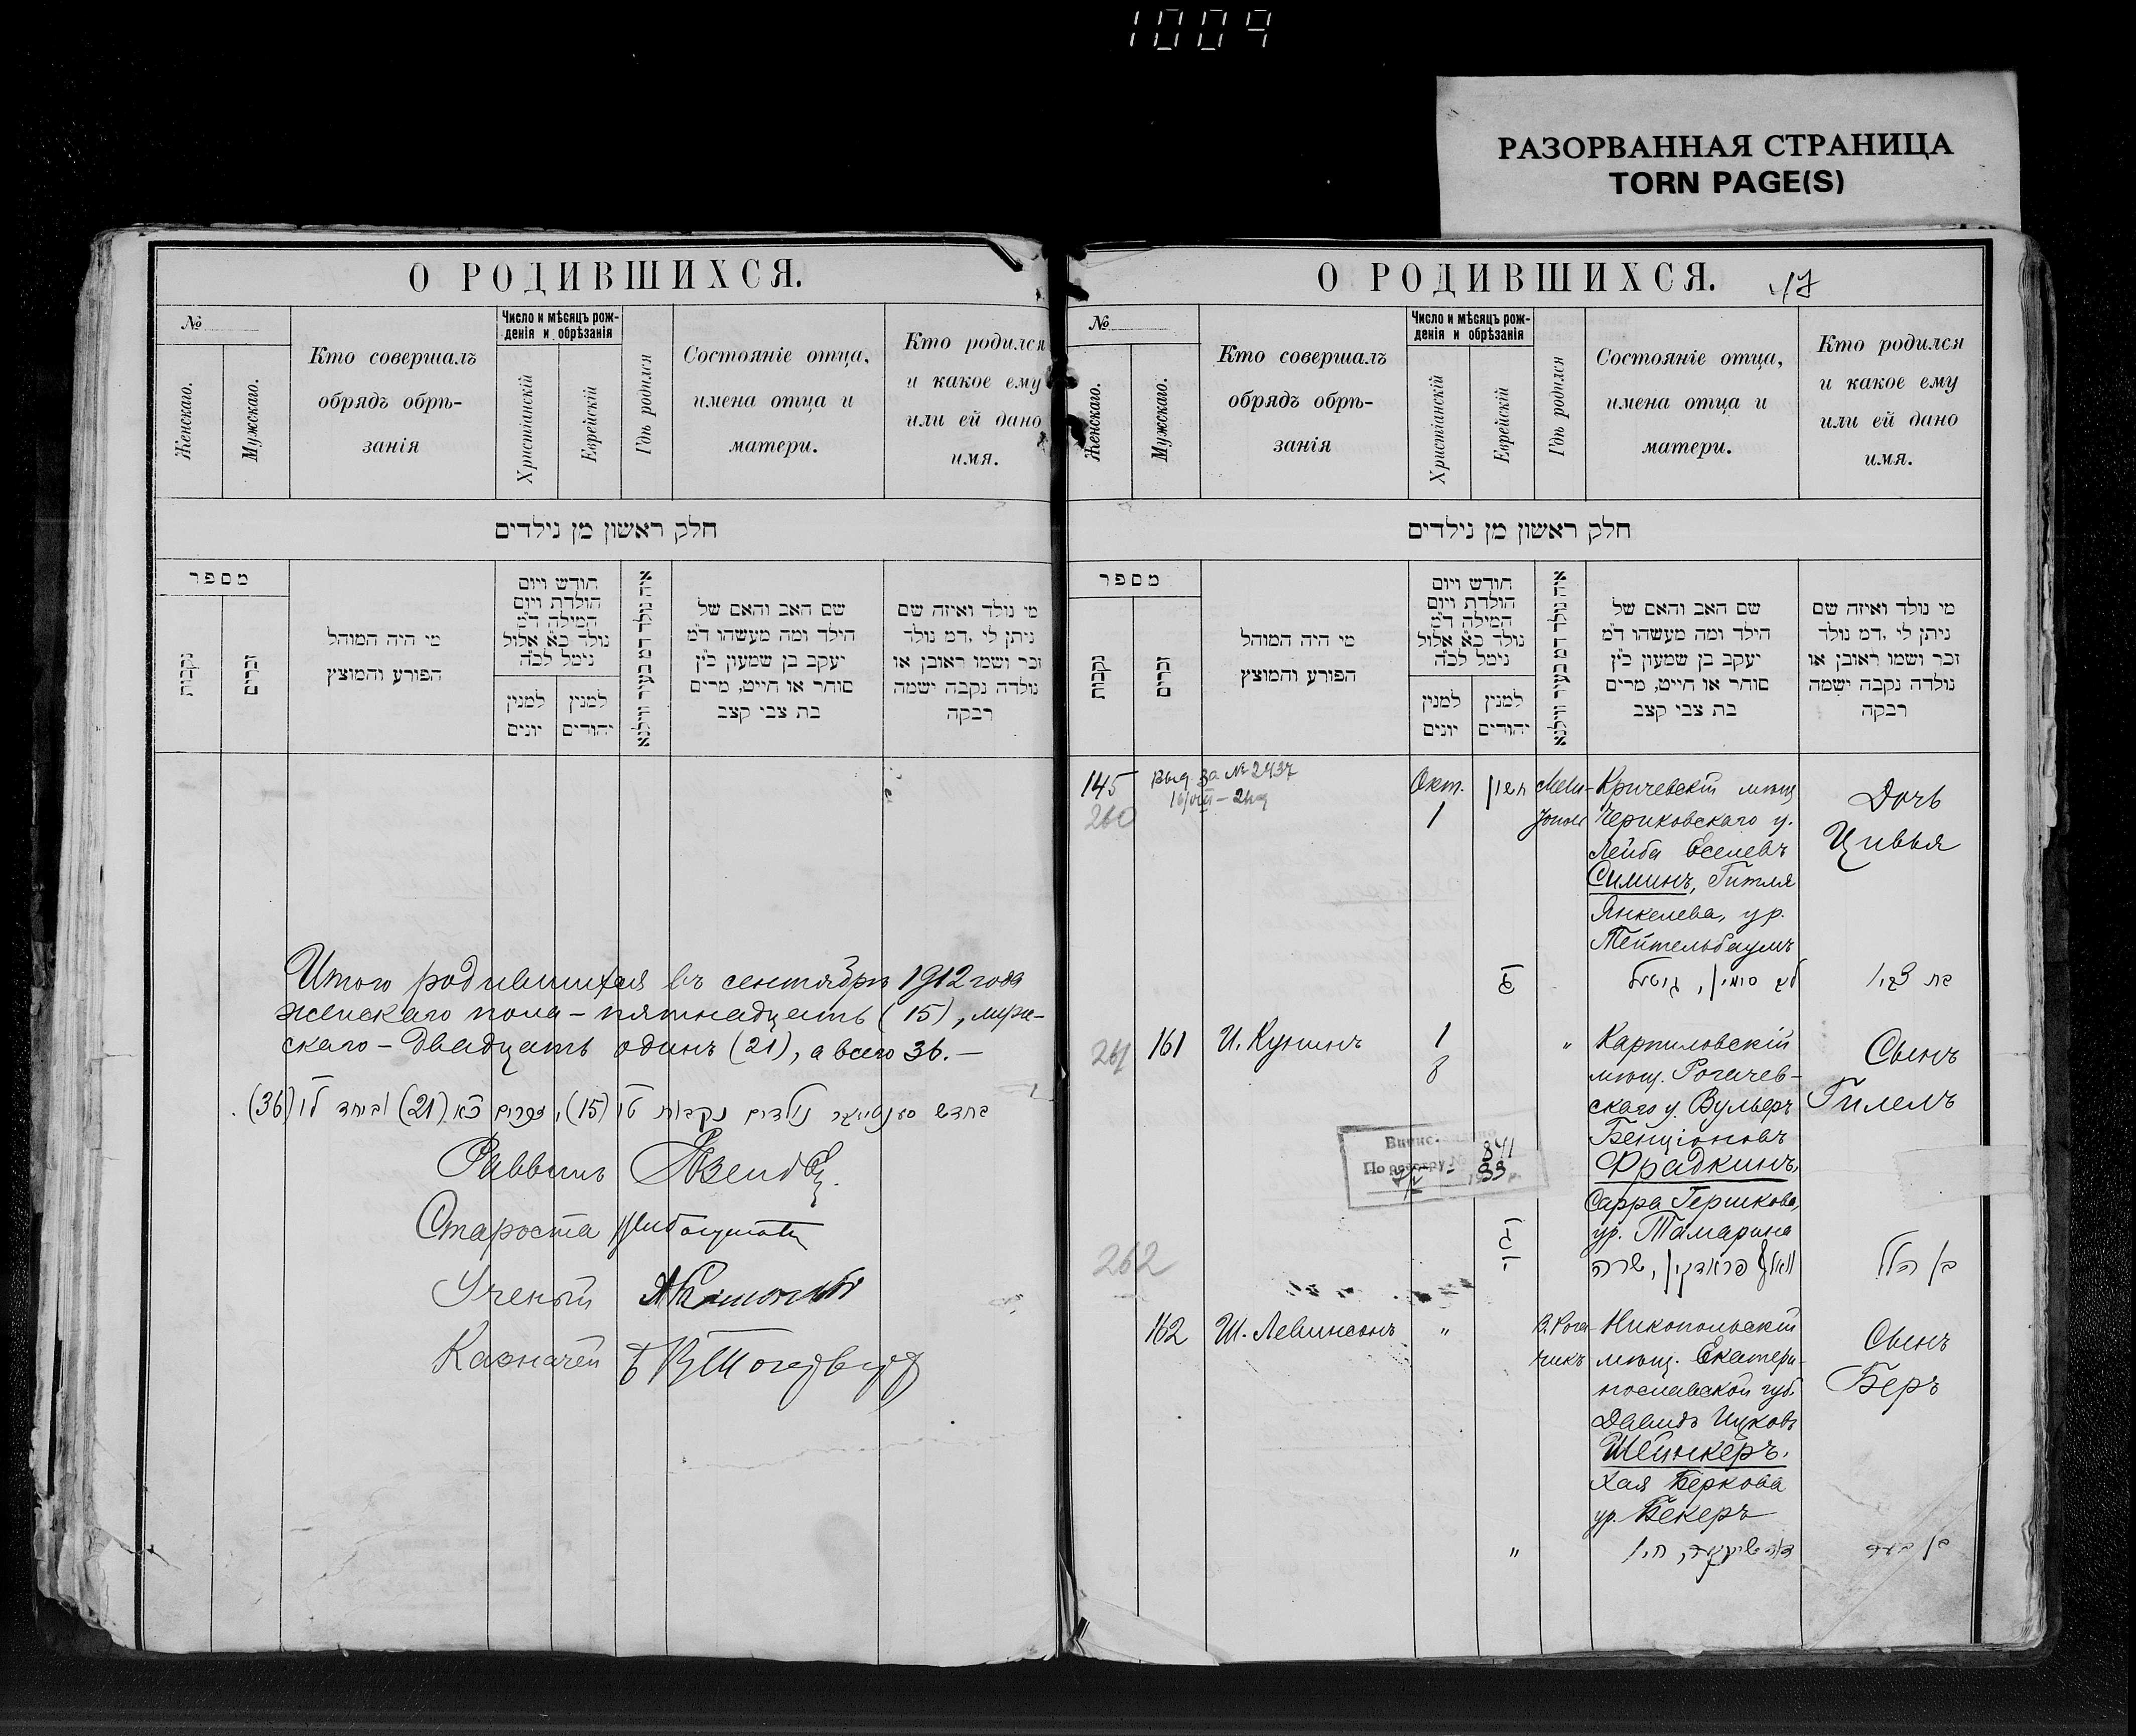 1009
РАЗОРВАННАЯ СТРАНИЦА
TORN PAGE(S)
О РОДИВШИХСЯ.
№
Женскаго.
Мужскаго.
Кто совершалъ
обрядъ обрѣ-
занія
Число и мѣсяцъ рож-
денія и обрѣзанія
Христіанскій
Еврейскій
Гдѣ родился
Состояніе отца,
имена отца и
матери.
Кто родился
и какое ему
или ей дано
имя.
חלק ראשון מן נילדים
מספר
נקבות
זכרים
מי היה המוהל
הפורע והמוצץ
חודש ויום
הולדת ויום
המילה ד"מ
נולד כ"א אלול
נימל לכ"ה
למנין
יונים
למנין
יהודים
איה נולד דמ בעיר ווילנא
שם האב והאם של
הילד ומה מעשהו ד"מ
יעקב בן שמעון כ"ץ
סוחר או חייט, מרים
בת צבי קצב
מי נולד ואיזה שם
ניתן לי, דמ נולד
זכר ושמו ראובן או
נולדה נקבה ישמה
רבקה
Итого родившихся въ сентябрѣ 1912 года
женскаго пола – пятнадцать (15), муж-
скаго – двадцать одинъ (21), а всего 36. –
בחדש סענטיאבר נולדים נקבות טו (15), זכרים כא (21) וביחד לו (36).
Раввинъ
Староста
Ученый
Казначей
О РОДИВШИХСЯ. 47
№
Женскаго.
Мужскаго.
Кто совершалъ
обрядъ обрѣ-
занія
Число и мѣсяцъ рож-
денія и обрѣзанія
Христіанскій
Еврейскій
Гдѣ родился
Состояніе отца,
имена отца и
матери.
Кто родился
и какое ему
или ей дано
имя.
חלק ראשון מן נילדים
מספר
נקבות
זכרים
מי היה המוהל
הפורע והמוצץ
חודש ויום
הולדת ויום
המילה ד"מ
נולד כ"א אלול
נימל לכ"ה
למנין
יונים
למנין
יהודים
איה נולד דמ בעיר ווילנא
שם האב והאם של
הילד ומה מעשהו ד"מ
יעקב בן שמעון כ"ץ
סוחר או חייט, מרים
בת צבי קצב
מי נולד ואיזה שם
ניתן לי, דמ נולד
זכר ושמו ראובן או
נולדה נקבה ישמה
רבקה
145
260
Выд. за № 2437
Окт.
1
חשון
Мели-
тополь
Кричевскій мѣщ.
Чериковскаго у.
Лейба Еселевъ
Симинъ, Гитля
Янкелева, ур.
Тейтельбаумъ
Дочь
Цивья
לב סימין, גיטל
בת צביו
261
161
И. Кунинъ
1
8
"
Карпиловскій
мѣщ. Рогачев-
скаго у. Вульфъ
Бенціоновъ
Фрадкинъ,
Сарра Гершкова,
ур. Тамарина
Сынъ
Гилель
וואלף פראדקין, שרה
בן הלל
841
33
262
162
Ш. Левинсонъ
"
В. Рога-
чикъ
Никопольскій
мѣщ. Екатери-
нославской губ.
Давидъ Ицковъ
Шейнкеръ,
Хая Беркова
ур. Бекеръ
Сынъ
Беръ
"